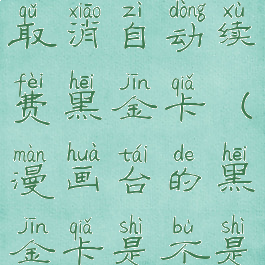 qǔ xiāo zì dòng xù
取消自动续
fèi hēi jīn qiǎ
费黑金卡（
màn huà tái de hēi
漫画台的黑
jīn qiǎ shì bù shì
金卡是不是